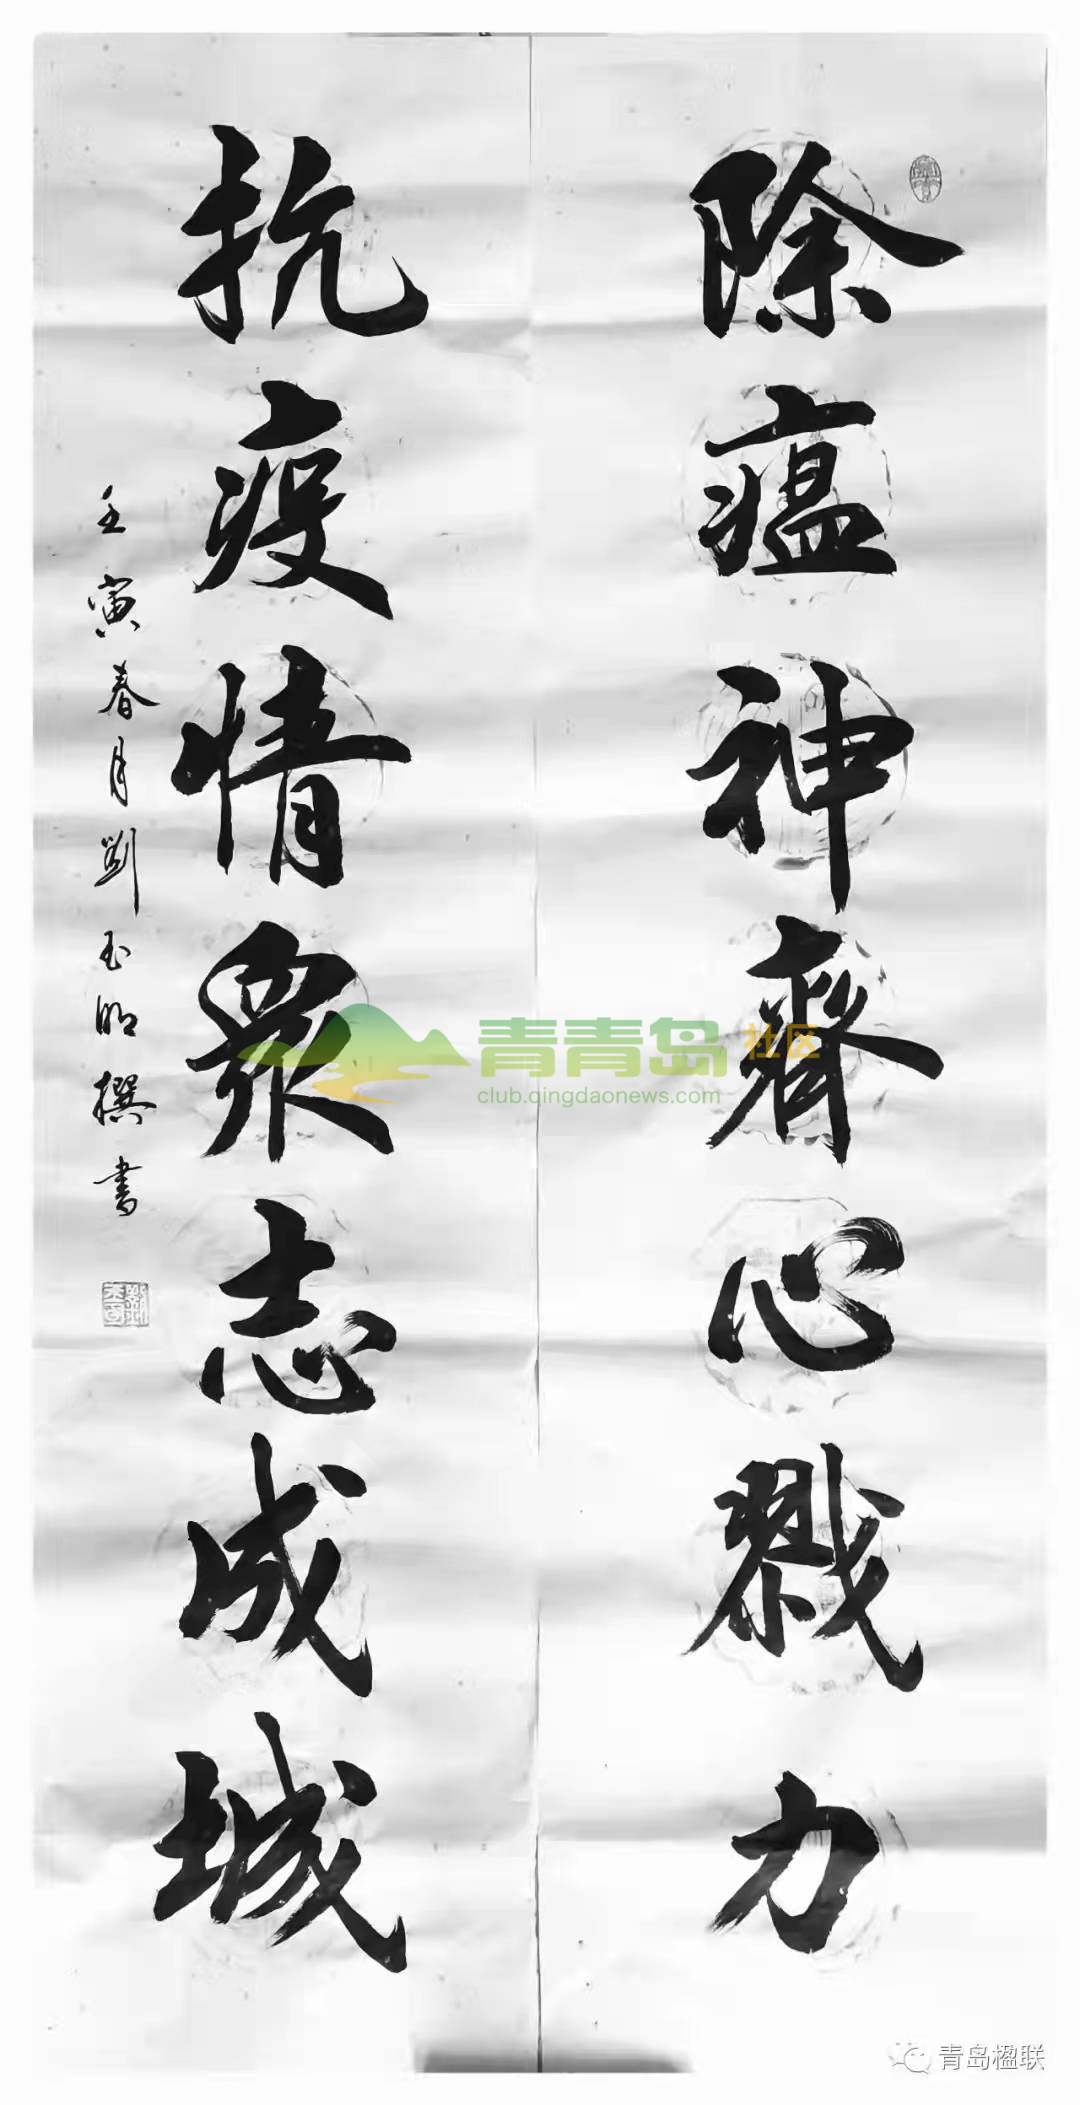 除瘟神齊心戮力
抗疫情衆志成城
壬寅春月劉玉明撰書
青青岛社区
club.qingdaonews.com
青岛楹联